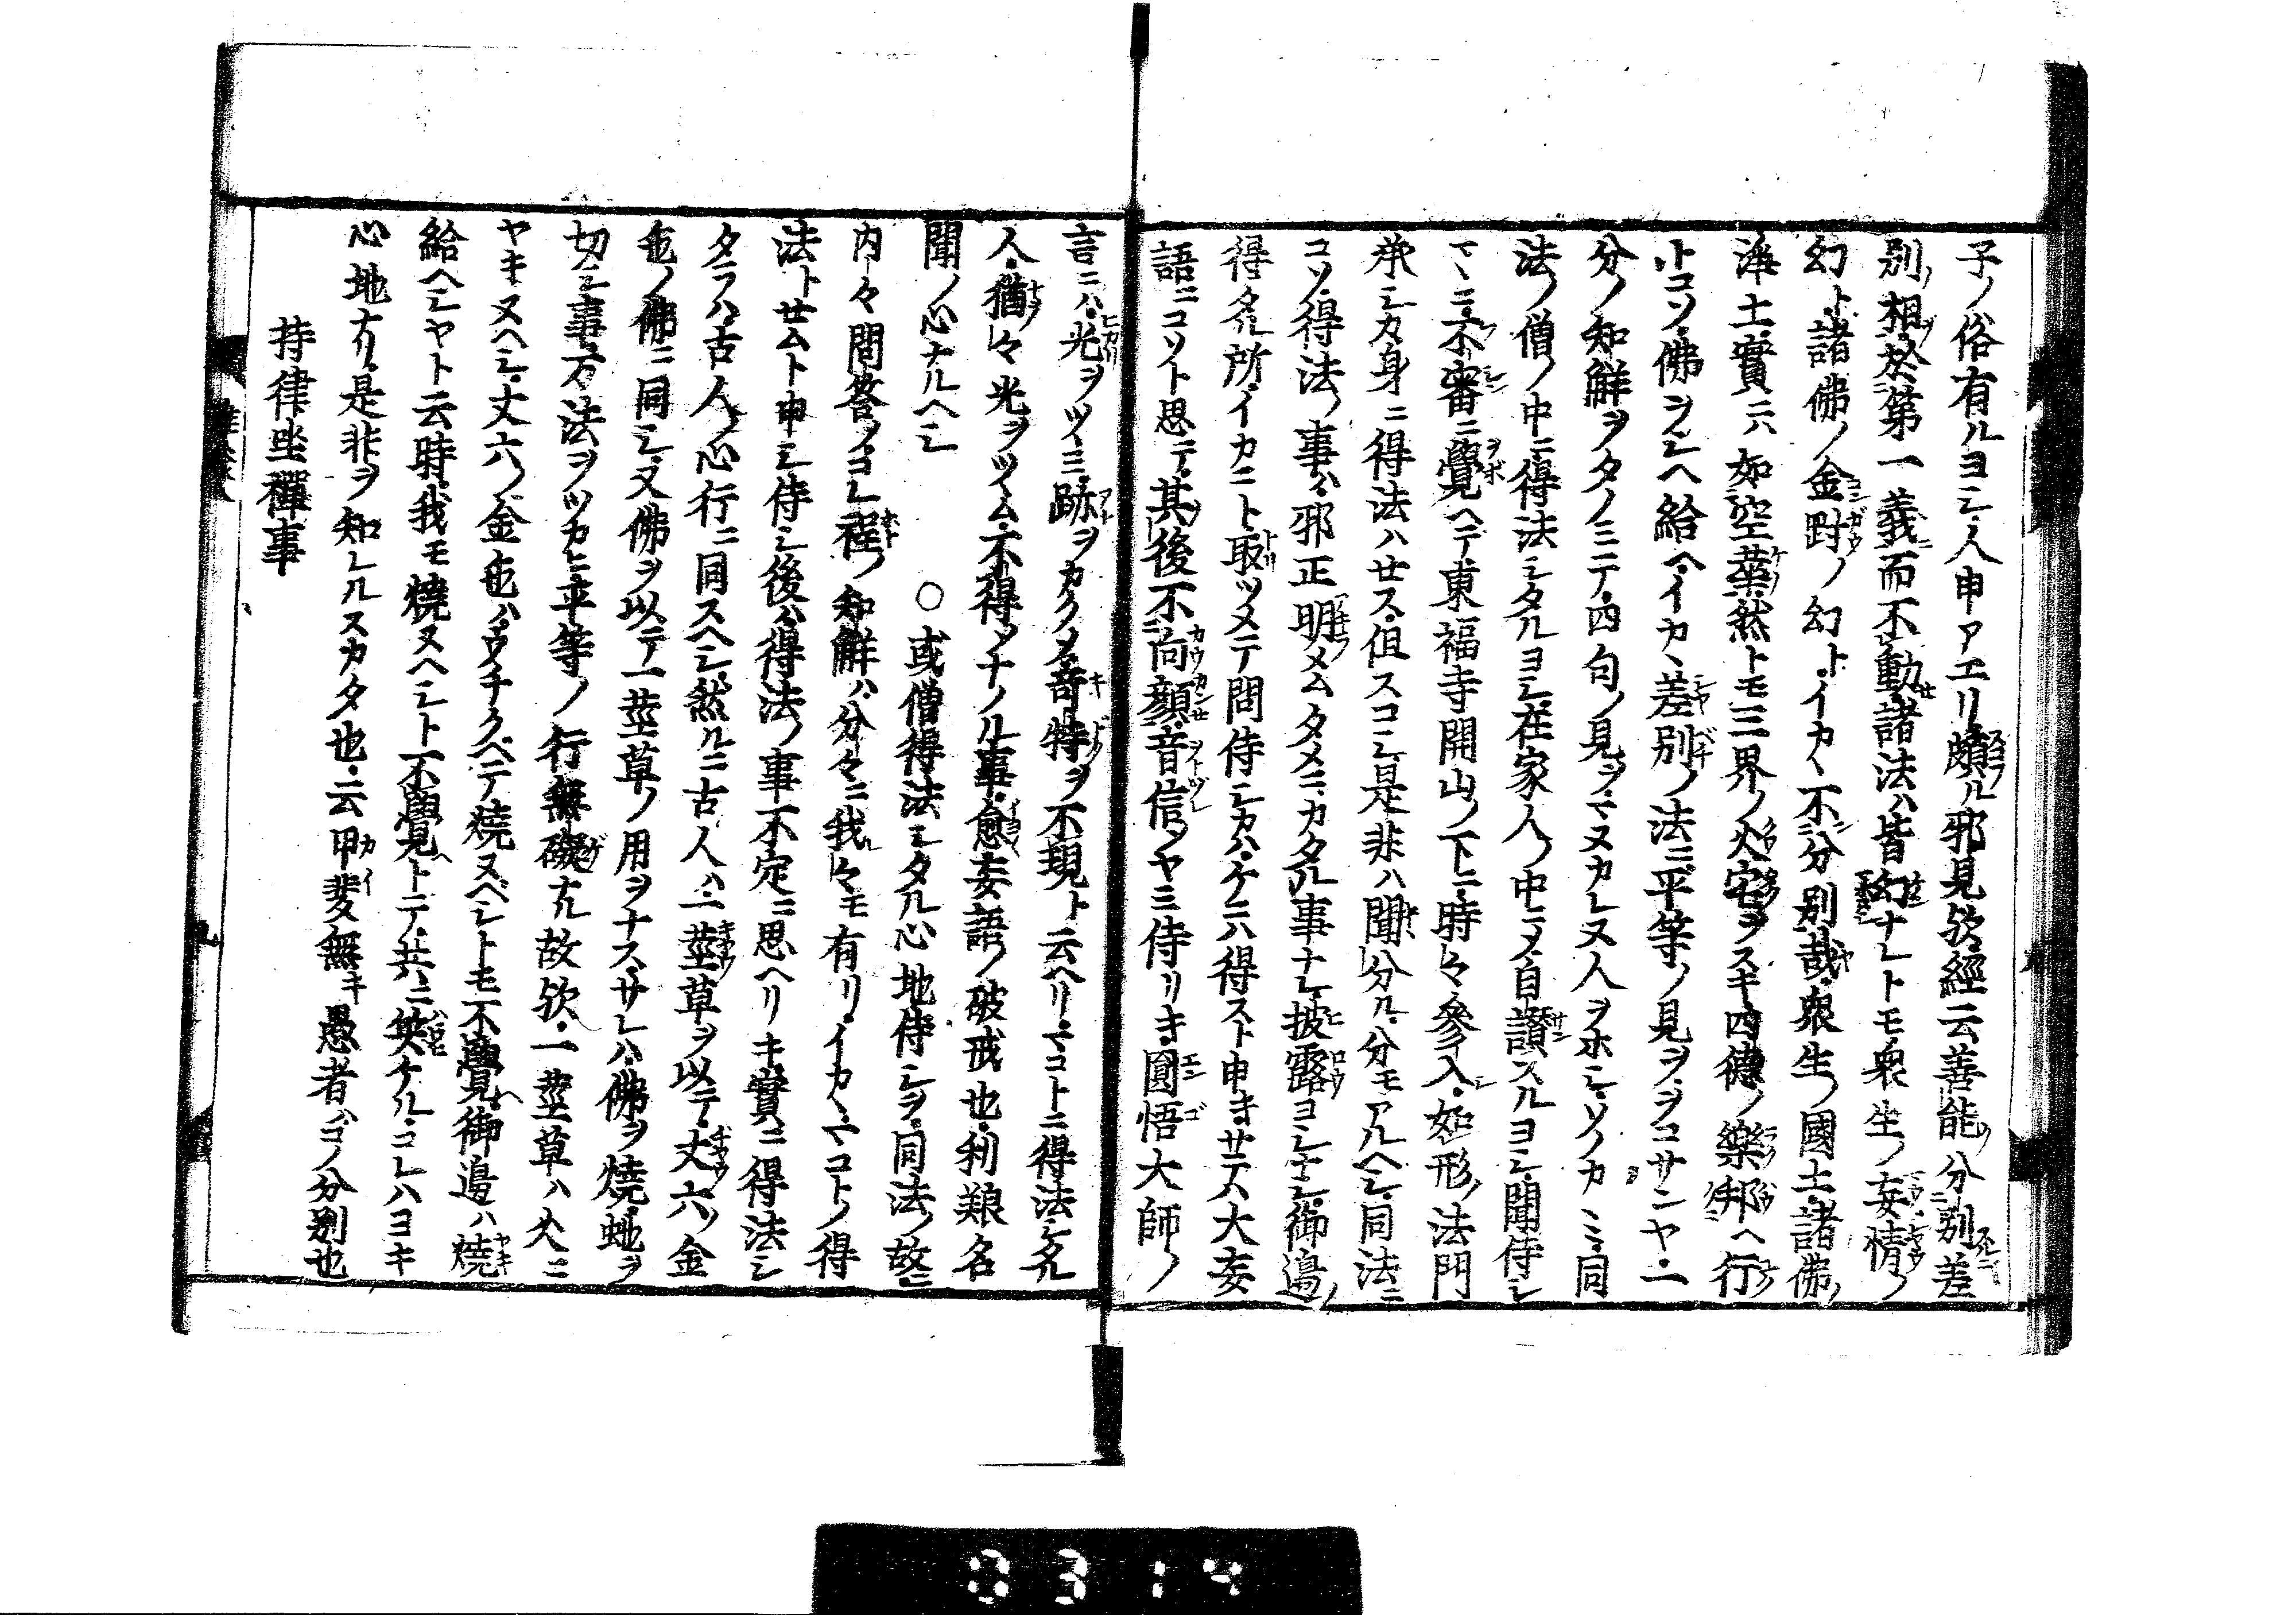 子ノ俗有ルヨシ人申アエリ頗ル邪見欤經云善能ノ分別ニ差
別ノ相ヲ於第一義而不動諸法ハ皆幻ナレトモ衆生ノ妄情ノ
幻ト諸佛ノ金剛ノ幻トイカヽ不分別哉衆生ノ國土諸佛ノ
淨土實ニハ如空華然トモ三界ノ火宅ヲスキ四德ノ樂邦ヘ行
トコソ佛ヲシヘ給ヘイカヽ差別ノ法ニ平等ノ見ヲヲコサンヤ一
分ノ知解ヲタノミニテ四句ノ見ヲマヌカレヌ人ヲホシソノカミ同
法ノ僧ノ中ニ得法シタルヨシ在家人ノ中ニメ自讃スルヨシ聞侍シ
マヽニ不審ニ覺ヘテ東福寺開山ノ下ニ時々參入シ如形ノ法門
承シカ身ニ得法ハセス但スコシ是非ハ聞分ル分モアルヘシ同法ニ
コソ得法ノ事ハ邪正明メムタメニカタル事ナレ披露ヨシナシ御邉ノ
得タル所イカニト取ツメテ問侍シカハケニハ得スト申キサテハ大妄
語ニコソト思テ其後不向顔音信ノヤミ侍リキ圓悟大師ノ
言ニハ光ヲツヽミ跡ヲカクメ奇特ヲ不現ト云ヘリマコトニ得法シタル
人猶々光ヲツヽム不得メナノル事愈妄語ノ破戒也利粮名
聞ノ心ナルヘシ　○或僧得法シタル心地侍シヲ同法ノ故ニ
内々問答ノコレ程ノ知解ハ分々ニ我々モ有リイカヽマコトノ得
法トセムト申シ侍シ後ハ得法ノ事不定ニ思ヘリキ實ニ得法シ
タラハ古人ノ心行ニ同スヘシ然ルニ古人ハ一莖草ヲ以テ丈六ノ金
色ノ佛ニ同シ又佛ヲ以テ一莖草ノ用ヲナスサレハ佛ヲ燒蛇ヲ
切シ事万法ヲツカヒ平等ノ行無礙ナル故欤一莖草ハ大ニ
ヤキヌヘシ丈六ノ金色ハウチクベテ燒ヌベシトモ不覺御邉ハ燒
給ヘシヤト云時我モ燒ヌヘシト不覺トテ共ニ笑ケルコレハヨキ
心地ナリ是非ヲ知レルスカタ也云甲斐無キ愚者ハコノ分別也
持律坐禪事